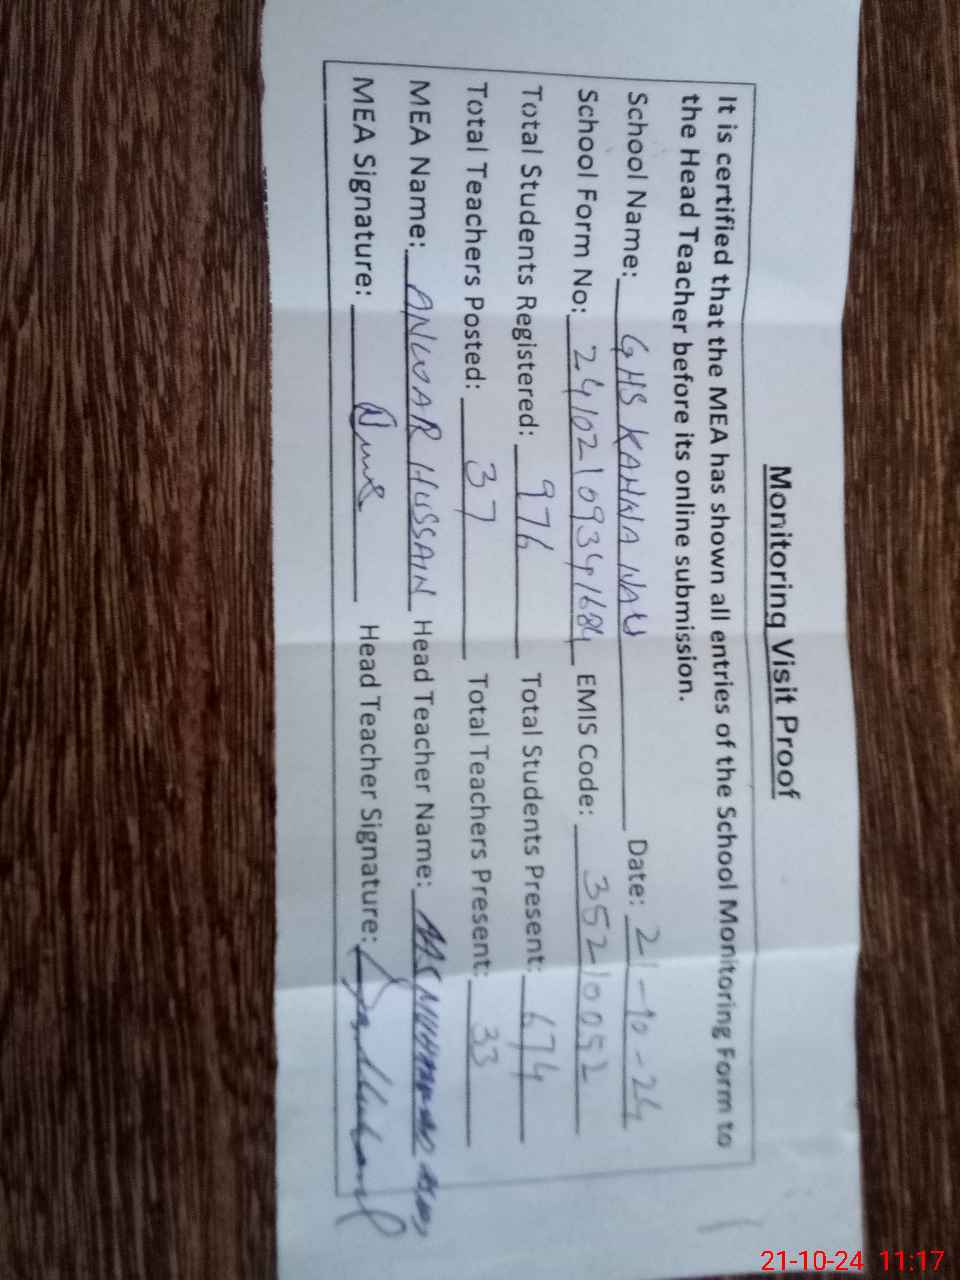 Monitoring Visit Proof
It is certified that the MEA has shown all entries of the School Monitoring Form to
the Head Teacher before its online submission.
School Name: GHS KAHNA NAU Date: 21-10-24
School Form No: 241021093441684 EMIS Code: 35210052
Total Students Registered: 976 Total Students Present: 674
Total Teachers Posted: 37 Total Teachers Present: 33
MEA Name: ANWAR HUSSAIN Head Teacher Name:
MEA Signature: Head Teacher Signature:
21-10-24 11:17